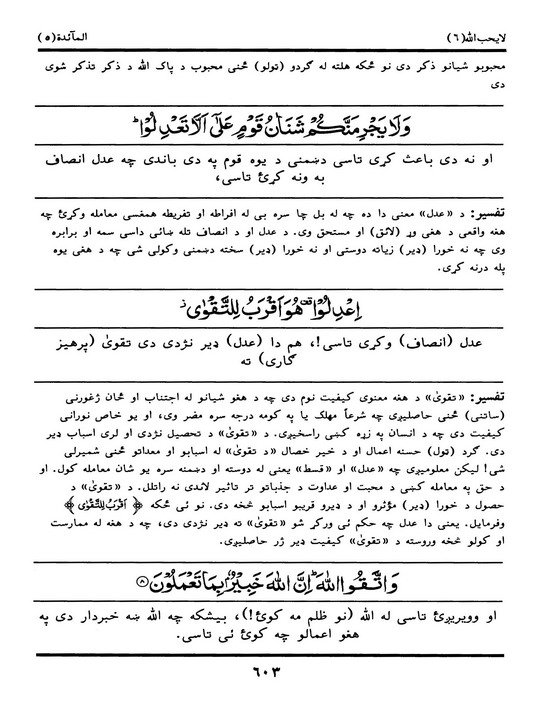 لايحب الله (٦) المآئدة (٥)
محبوبو شيانو ذكر دى نو ځكه هلته له گردو (تولو) ځنى محبوب د پاك الله د ذكر تذكر شوى
دى
وَلَا يَجْرِمَنَّكُمْ شَنَاٰنُ قَوْمٍ عَلٰٓى اَلَّا تَعْدِلُوْا ؕ
او نه دى باعث كړى تاسى دښمنى د يوه قوم په دى باندى چه عدل انصاف
به ونه كړئ تاسى،
تفسير: د «عدل» معنى دا ده چه له بل چا سره بى له افراطه او تفريطه همغسى معامله وكړئ چه
هغه واقعى د هغى وړ (لائق) او مستحق وى. د عدل او د انصاف تله ښائى داسى سمه او برابره
وى چه نه خورا (ډير) زياته دوستى او نه خورا (ډير) سخته دښمنى وكولى شى چه د هغى يوه
پله درنه كړى.
اِعْدِلُوْا ۫ هُوَ اَقْرَبُ لِلتَّقْوٰى ۫
عدل (انصاف) وكړى تاسى!، هم دا (عدل) ډير نژدى دى تقوىٰ (پرهيز
گارى) ته
تفسير: «تقوىٰ» د هغه معنوى كيفيت نوم دى چه د هغو شيانو له اجتناب او ځان ژغورنى
(ساتنى) ځنى حاصليږى چه شرعاً مهلك يا په كومه درجه سره مضر وى، او يو خاص نورانى
كيفيت دى چه د انسان په زړه كښى راسخيږى. د «تقوىٰ» د تحصيل نژدى او لرى اسباب ډير
دى. گرد (تول) حسنه اعمال او د خير خصال «د تقوىٰ» له اسبابو او معداتو ځنى شميرلى
شى! ليكن معلوميږى چه «عدل» او «قسط» يعنى له دوسته او دښمنه سره يو شان معامله كول. او
د حق په معامله كښى د محبت او عداوت د جذباتو تر تاثير لاندى نه راتلل. د «تقوىٰ» د
حصول د خورا (ډير) مؤثرو او د ډيرو قريبو اسبابو څخه دى. نو ئى ځكه ﴿ اَقْرَبُ لِلتَّقْوٰى ﴾
وفرمايل. يعنى دا عدل چه حكم ئى وركړ شو «تقوىٰ» ته ډير نژدى دى، چه د هغه له ممارست
او كولو څخه وروسته د «تقوىٰ» كيفيت ډير ژر حاصليږى.
وَاتَّقُوا اللّٰهَ ؕ اِنَّ اللّٰهَ خَبِيْرٌۢ بِمَا تَعْمَلُوْنَ ۝٨
او وويريږئ تاسى له الله (نو ظلم مه كوئ!)، بيشكه چه الله ښه خبردار دى په
هغو اعمالو چه كوئ ئى تاسى.
٦٠٣